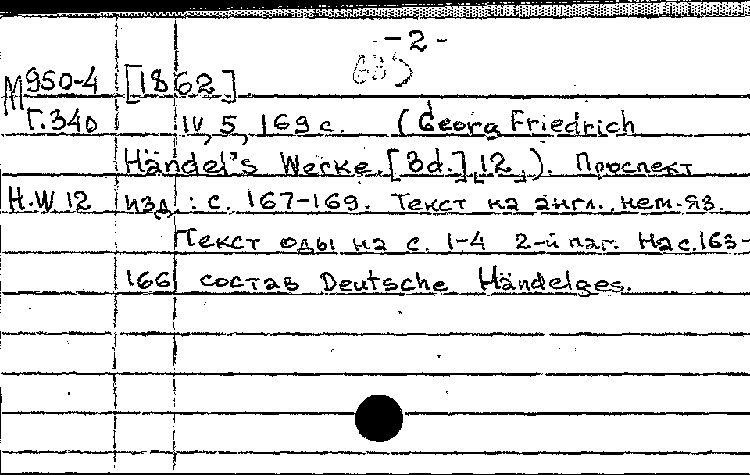 -2-
М950-4 [1862]
Г.340 IV, 5, 169 с. (Georg Friedrich
Händel's Werke. [Bd.], 12,). Проспект
H.W 12 изд.: с. 167-169. Текст на англ., нем. яз.
Текст оды на с. 1-4 2-й паг. На с. 163-
166 состав Deutsche Händelges.